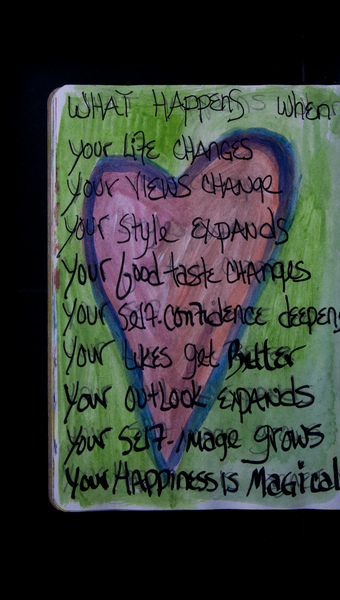 WHAT HAPPENS when
your Life CHANGES
your VIEWS CHANGE
your Style EXPANDS
your Good taste CHANGES
your Self-Confidence deepens
your LIKES get Better
Your OUTLOOK EXPANDS
Your SElf-image grows
Your HAPPINESS is MAGICAL